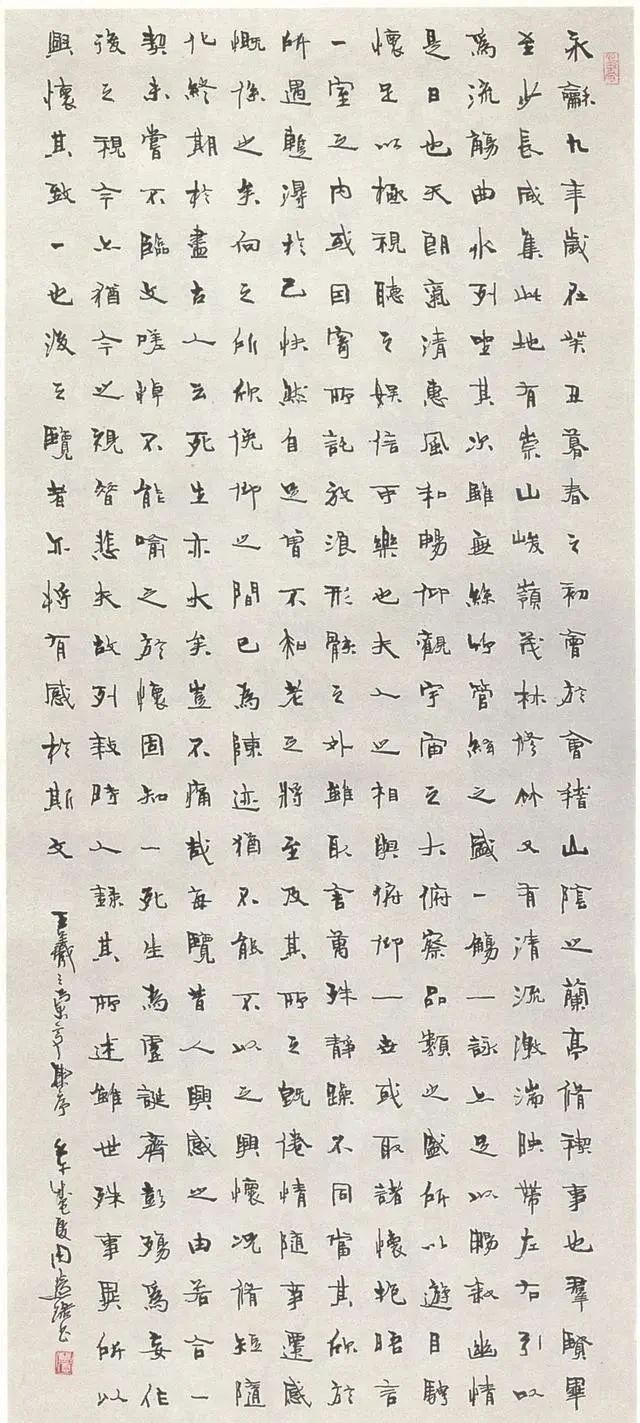 永龢九年歲在癸丑暮春之初會於會稽山陰之蘭亭脩禊事也羣賢畢
至少長咸集此地有崇山峻嶺茂林修竹又有清流激湍映帶左右引以
為流觴曲水列坐其次雖無絲竹管絃之盛一觴一詠亦足以暢敘幽情
是日也天朗氣清惠風和暢仰觀宇宙之大俯察品類之盛所以遊目騁
懷足以極視聽之娛信可樂也夫人之相與俯仰一世或取諸懷抱晤言
一室之內或因寄所託放浪形骸之外雖取舍萬殊靜躁不同當其欣於
所遇蹔得於己快然自足曾不知老之將至及其所之既倦情隨事遷感
慨係之矣向之所欣俛仰之間已為陳迹猶不能不以之興懷況脩短隨
化終期於盡古人云死生亦大矣豈不痛哉每覽昔人興感之由若合一
契未嘗不臨文嗟悼不能喻之於懷固知一死生為虛誕齊彭殤為妄作
後之視今亦猶今之視昔悲夫故列敘時人錄其所述雖世殊事異所以
興懷其致一也後之覽者亦將有感於斯文
王羲之蘭亭集序